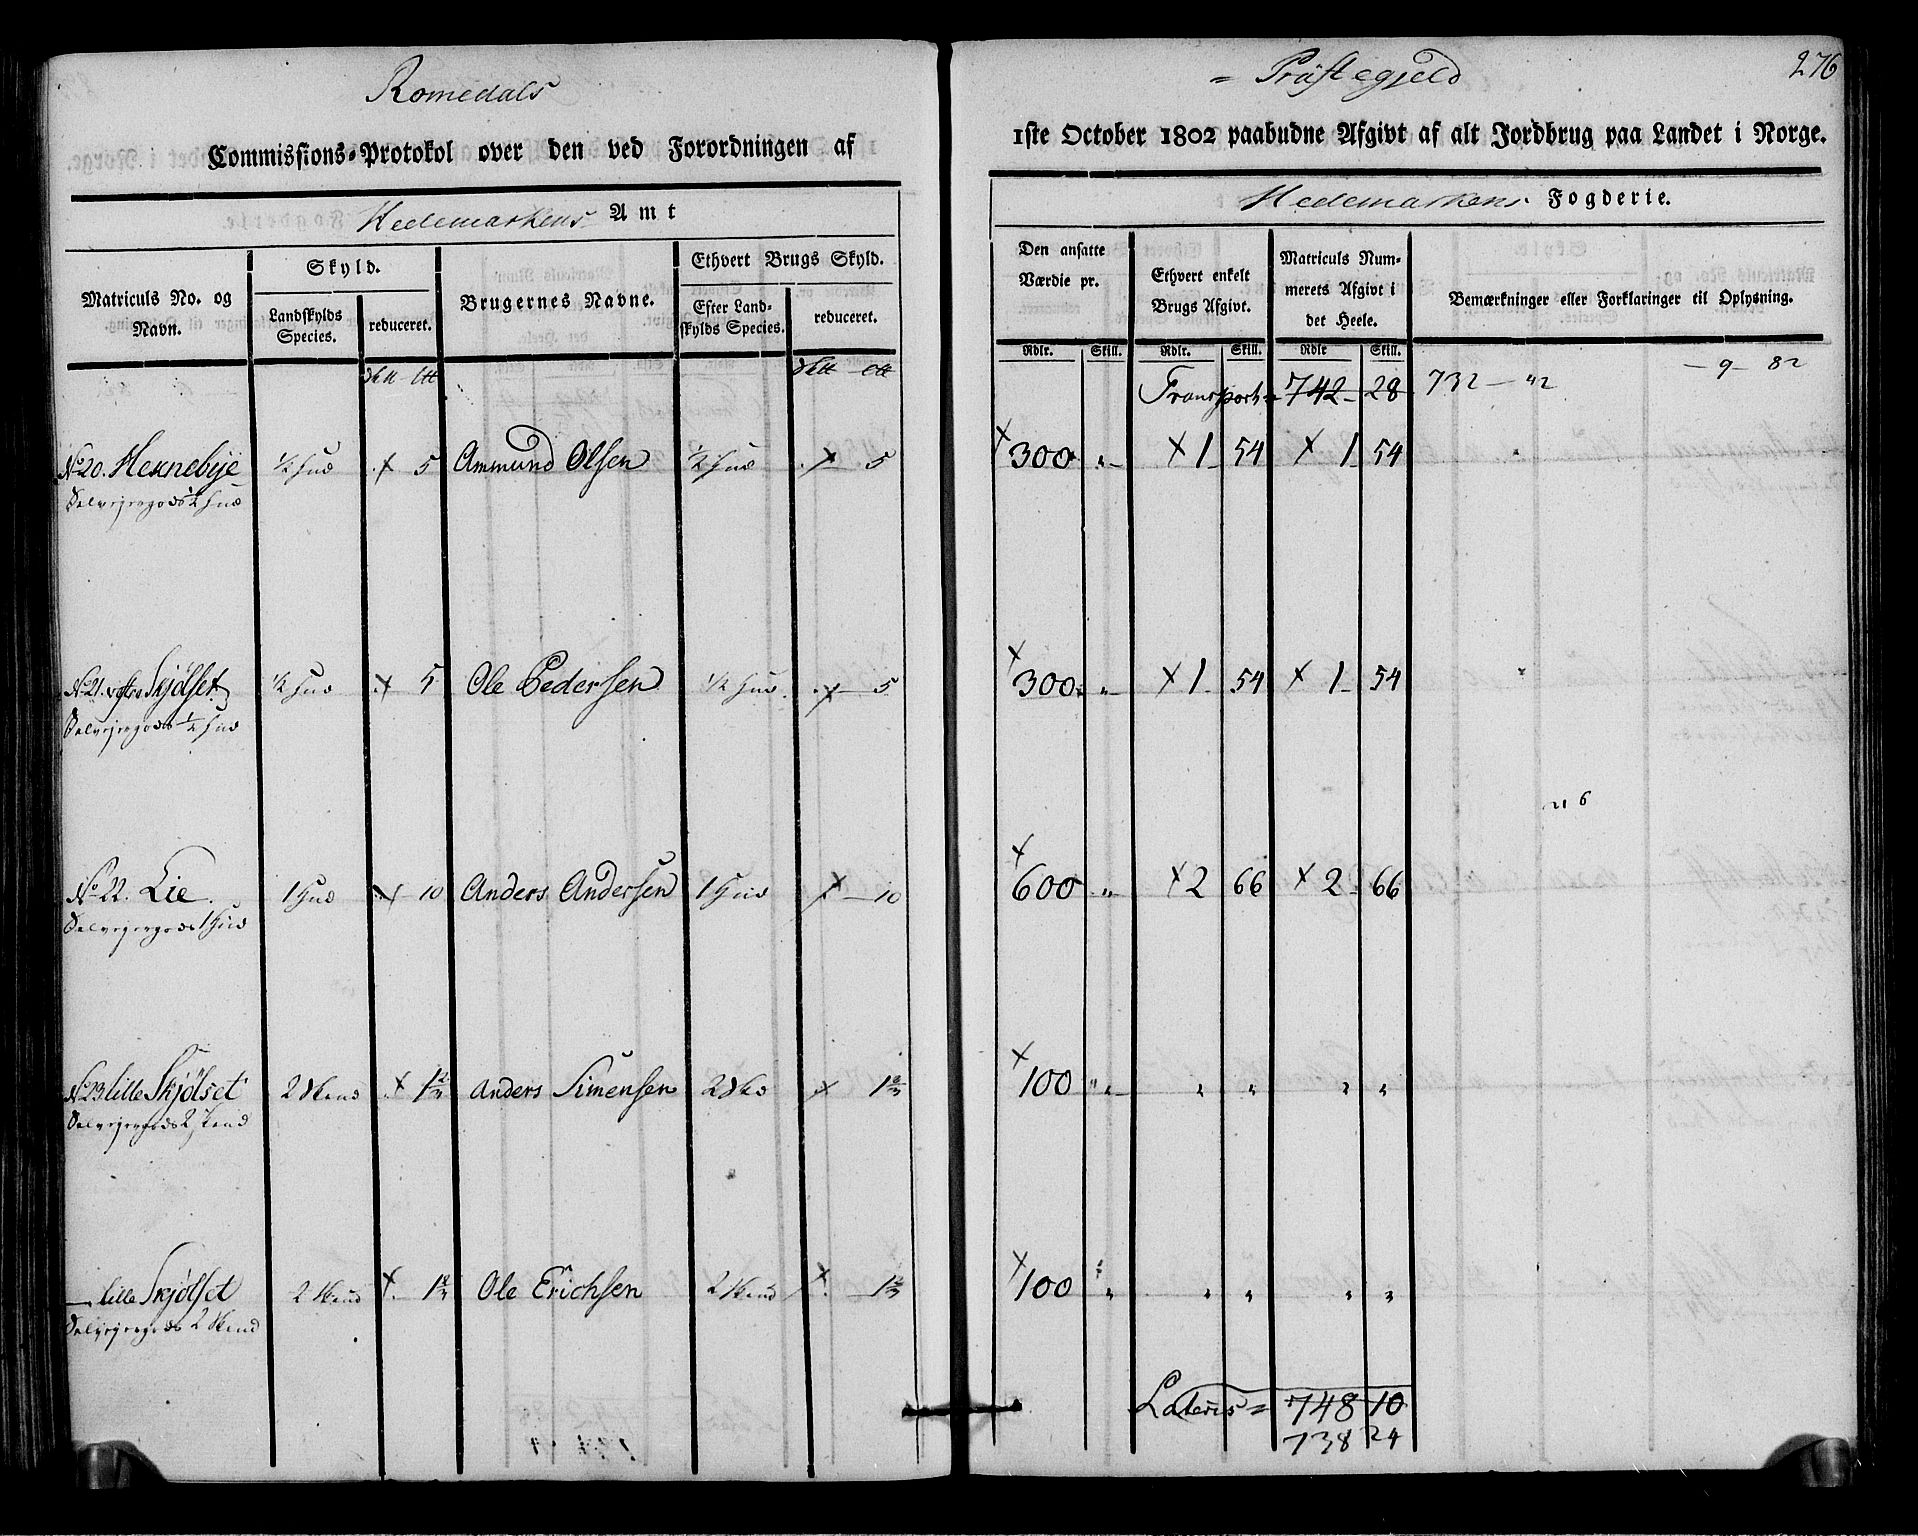 Romedals
Commissions-Protokol over den ved Forordningen af
Hedemarkens Amt
Matriculs No. og Navn.
Skyld.
Landskylds Species.
reduceret.
Brugernes Navne.
Ethvert Brugs Skyld.
Efter Landskylds Species.
reduceret.
No 20. Hexnebÿe ½ hud 5 Ammund Olsen ½ hud 5
Selvejergods ½ hud
No 21. Skjölset ½ hud 5 Ole Pedersen ½ hud 5
Selvejergods ½ hud
No 22. Lie 1 hud 10 Anders Andersen 1 hud 10
Selvejergods 1 hud
No 23 lille Skjölset 2 skind 1⅔ Anders Simensen 2 1⅔
Selvejergods 2 skind
— lille Skjölset 2 skind 1⅔ Ole Erichsen 2 skind 1⅔
Selvejergods 2 skind
= Præstegjeld
276
1ste October 1802 paabudne Afgivt af alt Jordbrug paa Landet i Norge.
Hedemarkens Fogderie.
Den ansatte Værdie pr.
Ethvert enkelt Brugs Afgivt.
Matriculs Nummerets Afgivt i det Heele.
Bemærkninger eller Forklaringer til Oplysning.
Rdlr. Skill. Rdlr. Skill. Rdlr Skill.
Transport = 742 28 732 — 42 — 9 — 82
300 „ 1 54 1 54
300 „ 1 54 1 54
6
600 „ 2 66 2 66
100 „ „ „ „ „
100 „ „ „ „ „
Lateris = 748 10
738 24